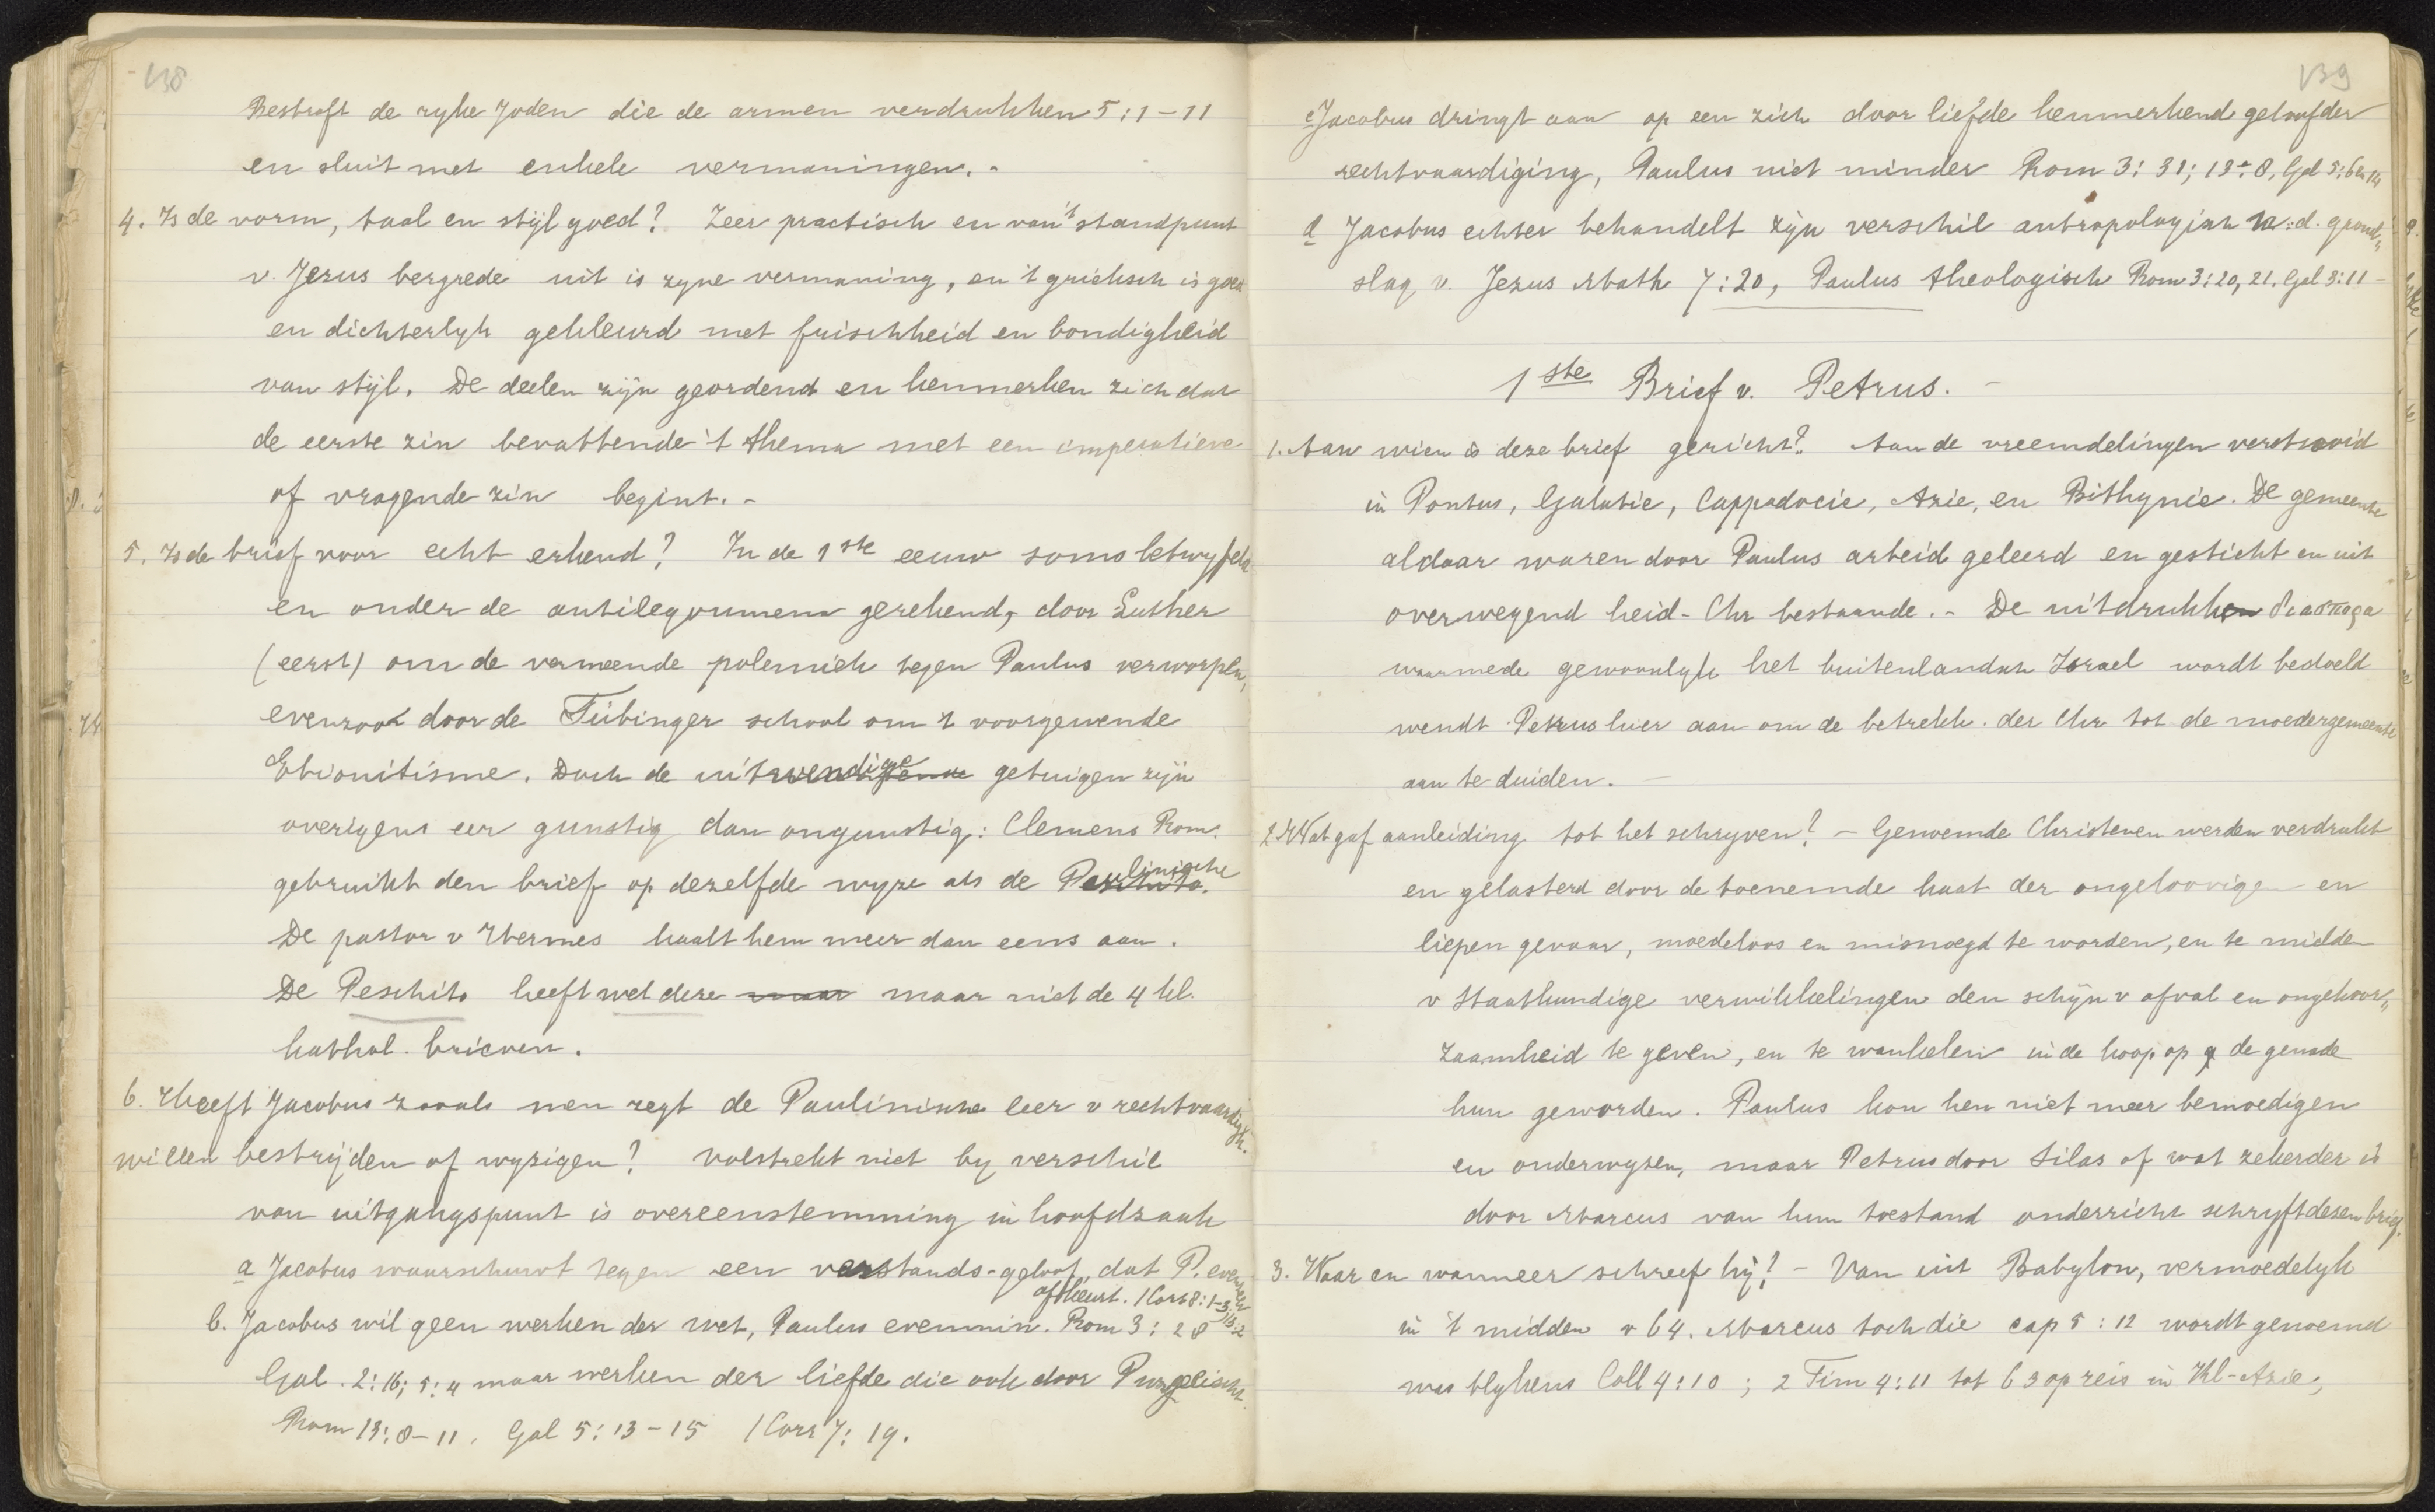 138
Bestraft de ryke Joden die de armen verdrukken 5:1-11
en sluit met enkele vermaningen. -
4. Is de vorm, taal en stijl goed? Zeer practisch en van 't standpunt
v. Jezus bergrede uit is zyne vermaning, en 't grieksch is goed
en dichterlyk gekleurd met frischheid en bondigheid
van stijl. De deelen zijn geordend en kenmerken zich dat
de eerste zin bevattende 't thema met een imperatieve
of vragende zin begint. -
5. Is de brief voor echt erkend? In de 1ste eeuw soms betwyfeld
en onder de antilegoumena gerekend, door Luther
(eerst) om de vermeende polemiek tegen Paulus verworpen,
evenzoo door de Tübinger school om 't voorgewende
Ebionitisme. Doch de uitwendige getuigen zijn
overigens eer gunstig dan ongunstig: Clemens Rom.
gebruikt den brief op dezelfde wyze als de Paulinische
De pastor v Hermes haalt hem meer dan eens aan.
De Peschito heeft wel deze maar maar niet de 4 kl.
kathol. brieven.
6. Heeft Jacobus zooals men zegt de Paulinische leer v rechtvaardigh.
willen bestrijden of wyzigen? volstrekt niet by verschil
van uitgangspunt is overeenstemming in hoofdzaak
a Jacobus waarschuwt tegen een verstands-geloof, dat P. evenzeer
afkeurt. 1 Cor 8:1-3
b. Jacobus wil geen werken der wet, Paulus evenmin. Rom 3:28
Gal. 2:16; 5:4 maar werken der liefde die ook door P.
Rom 13:8-11. Gal 5:13-15 1 Cor 7:19.
139
c Jacobus dringt aan op een zich door liefde kenmerkend geloof der
rechtvaardiging, Paulus niet minder Rom 3:31; 13:8, Gal 5:6 en 14
d Jacobus echter behandelt zijn verschil antropologisch n. d. grond„
slag v. Jezus Math 7:20, Paulus theologisch Rom 3:20, 21. Gal 3:11 -
1ste Brief v. Petrus. -
1. Aan wien is deze brief gericht? Aan de vreemdelingen verstrooid
in Pontus, Galatie, Cappadocie, Azie, en Bithynie. De gemeente
aldaar waren door Paulus arbeid geleerd en gesticht en uit
overwegend heid-Chr bestaande. - De uitdrukken διασπορα
waarmede gewoonlyk het buitenlandsch Israel wordt bedoeld
wendt Petrus hier aan om de betrekk. der Chr tot de moedergemeente
aan te duiden. -
2. Wat gaf aanleiding tot het schryven? - Genoemde Christenen werden verdrukt
en gelasterd door de toenemde haat der ongeloovigen en
liepen gevaar, moedeloos en misnoegd te worden, en te midden
v Staatkundige verwikkelingen den schijn v afval en ongehoor„
zaamheid te geven, en te wankelen in de hoop op de genade
hun geworden. Paulus kon hen niet meer bemoedigen
en onderwyzen, maar Petrus door Silas of wat zekerder is
door Marcus van hun toestand onderricht schryft dezen brief.
3. Waar en wanneer schreef hij? - Van uit Babylon, vermoedelyk
in 't midden v 64. Marcus toch die cap 5:12 wordt genoemd
was blykens Coll 4:10; 2 Tim 4:11 tot 63 op reis in Kl-Azie,